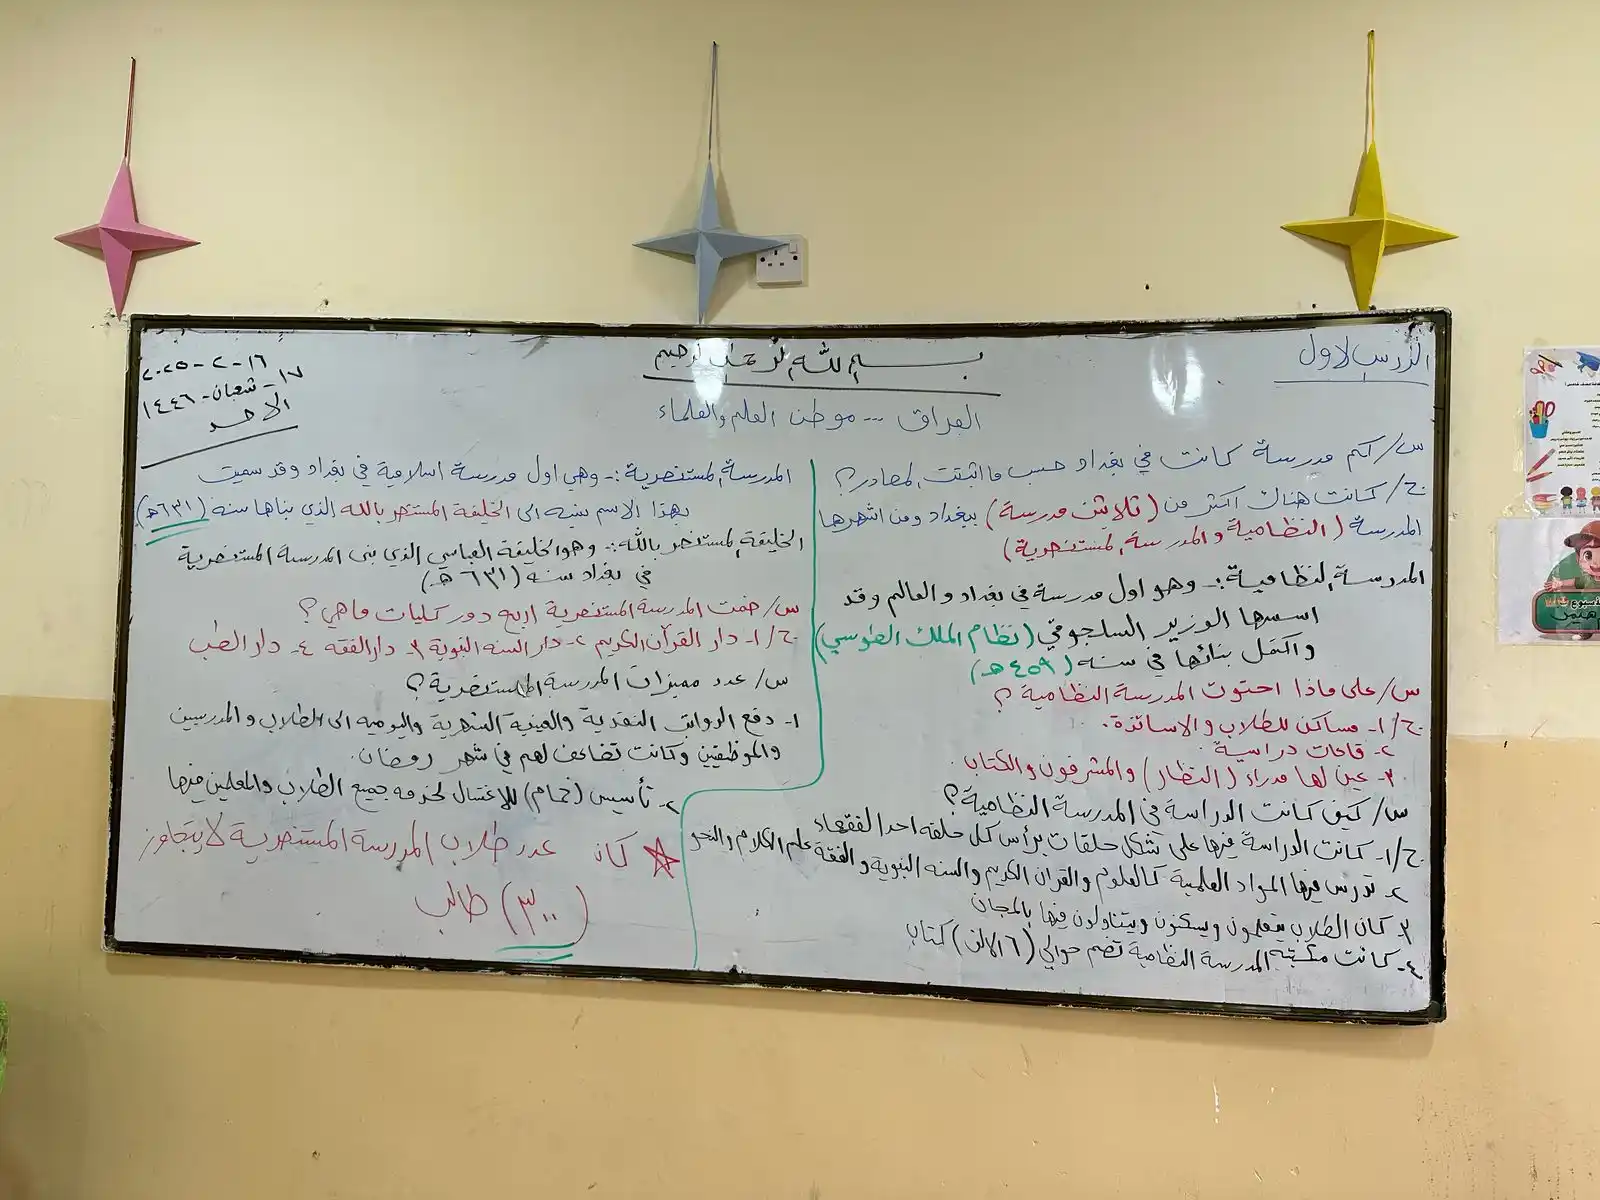 الدرس الاول
بسم الله الرحمن الرحيم
١٦-٢-٢٠٢٥
١٧-شعبان-١٤٤٦
الاحد
العراق --- موطن العلم والعلماء
س/ كم مدرسة كانت في بغداد حسب ما اثبتت المصادر؟
ج/ كانت هناك اكثر من (ثلاثين مدرسة) ببغداد ومن اشهرها
المدرسة (النظامية والمدرسة المستنصرية)
المدرسة النظامية :- وهو اول مدرسة في بغداد والعالم وقد
اسسها الوزير السلجوقي (نظام الملك الطوسي)
واكتمل بنائها في سنه (٤٥٩ هـ)
س/ على ماذا احتوت المدرسة النظامية؟
ج/ ١- مساكن للطلاب والاساتذة.
٢- قاعات دراسية.
٣- عين لها مدراء (النظار) والمشرفون والكتاب.
س/ كيف كانت الدراسة في المدرسة النظامية؟
ج/ ١- كانت الدراسة فيها على شكل حلقات يرأس كل حلقه احد الفقهاء
٢- تدرس فيها المواد العلمية كالعلوم والقران الكريم والسنه النبوية والفقة علم الكلام والنحو
٣- كان الطلاب يتعلمون ويسكنون ويتناولون فيها بالمجان
٤- كانت مكتبة المدرسة النظامية تضم حوالي (٦ الالف) كتاب
المدرسة المستنصرية :- وهي اول مدرسة اسلامية في بغداد وقد سميت
بهذا الاسم نسبه الى الخليفة المستنصر بالله الذي بناها سنه (٦٣١ هـ)
الخليفة المستنصر بالله :- وهو الخليفة العباسي الذي بنى المدرسة المستنصرية
في بغداد سنه (٦٣١ هـ)
س/ ضمت المدرسة المستنصرية اربع دور كليات ماهي؟
ج/ ١- دار القرآن الكريم ٢- دار السنه النبوية ٣- دار الفقه ٤- دار الطب
س/ عدد مميزات المدرسة المستنصرية؟
١- دفع الرواتب النقدية والعينية الشهرية واليوميه الى الطلاب والمدرسين
والموظفين وكانت تضاعف لهم في شهر رمضان.
٢- تأسيس (حمام) للاغتسال لخدمه جميع الطلاب والمعلمين فيها
كان عدد طلاب المدرسة المستنصرية لا يتجاوز
(٣٠٠) طالب